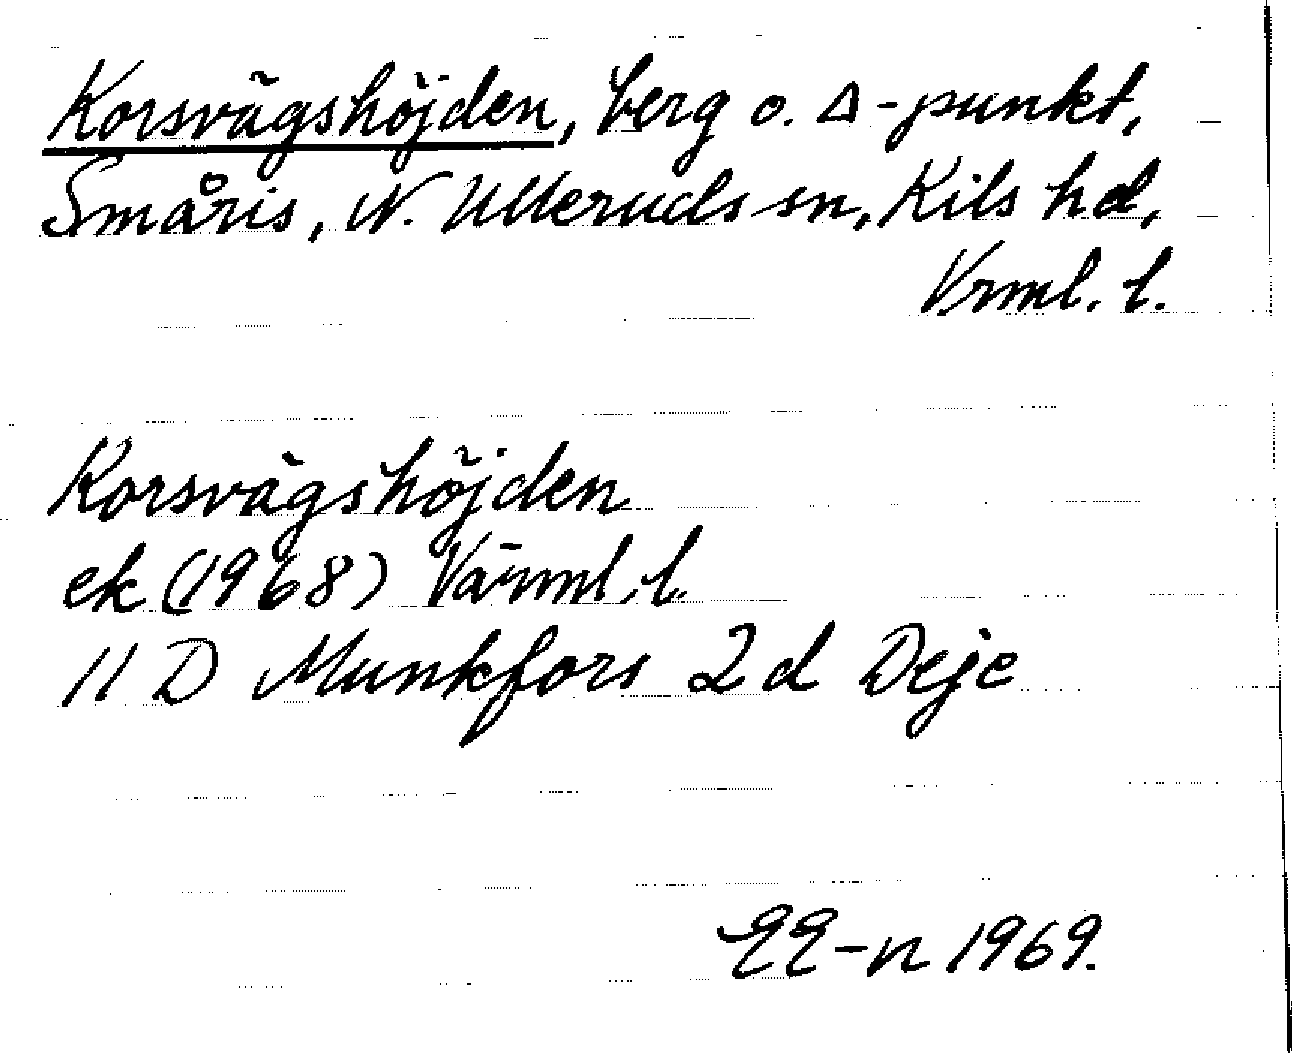 Korsvägshöjden, berg o. Δ-punkt,
Småris, N. Ulleruds sn, Kils hd,
Vrml. l.
Korsvägshöjden
ek (1968) Värml. l.
11 D Munkfors 2d Deje
EE-n 1969.